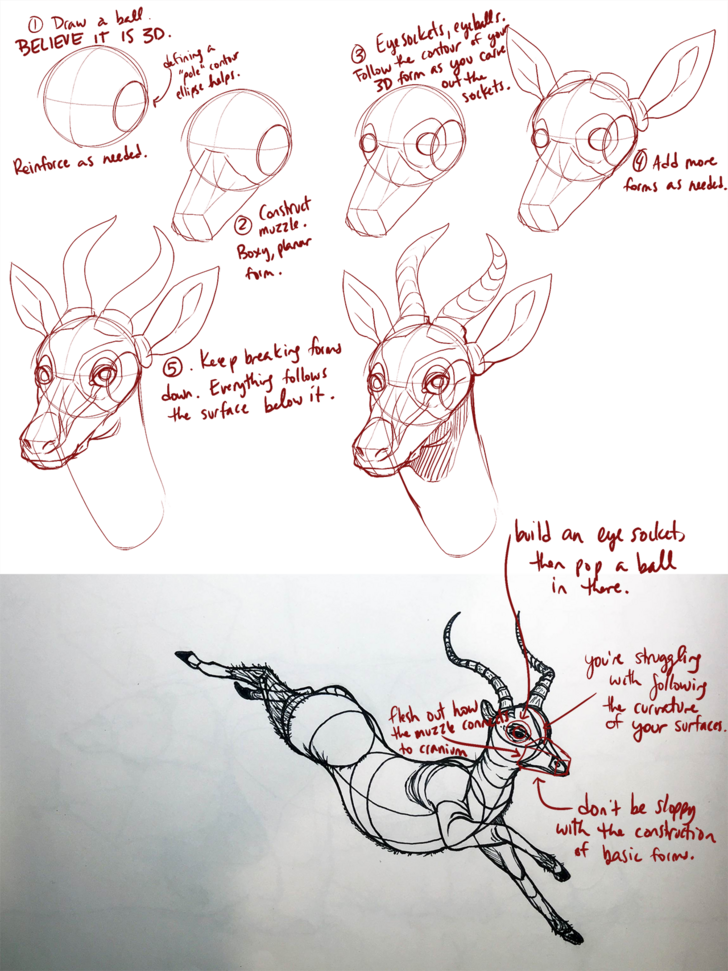 ① Draw a ball.
BELIEVE IT IS 3D.
defining a
"pole" contour
ellipse helps.
Reinforce as needed.
② Construct
muzzle.
Boxy, planar
form.
③ Eye sockets, eyeballs.
Follow the contour of your
3D form as you carve
out the
sockets.
④ Add more
forms as needed.
⑤. Keep breaking forms
down. Everything follows
the surface below it.
build an eye socket,
then pop a ball
in there.
you're struggling
with following
the curvature
of your surfaces.
flesh out how
the muzzle connects
to cranium
don't be sloppy
with the construction
of basic forms.